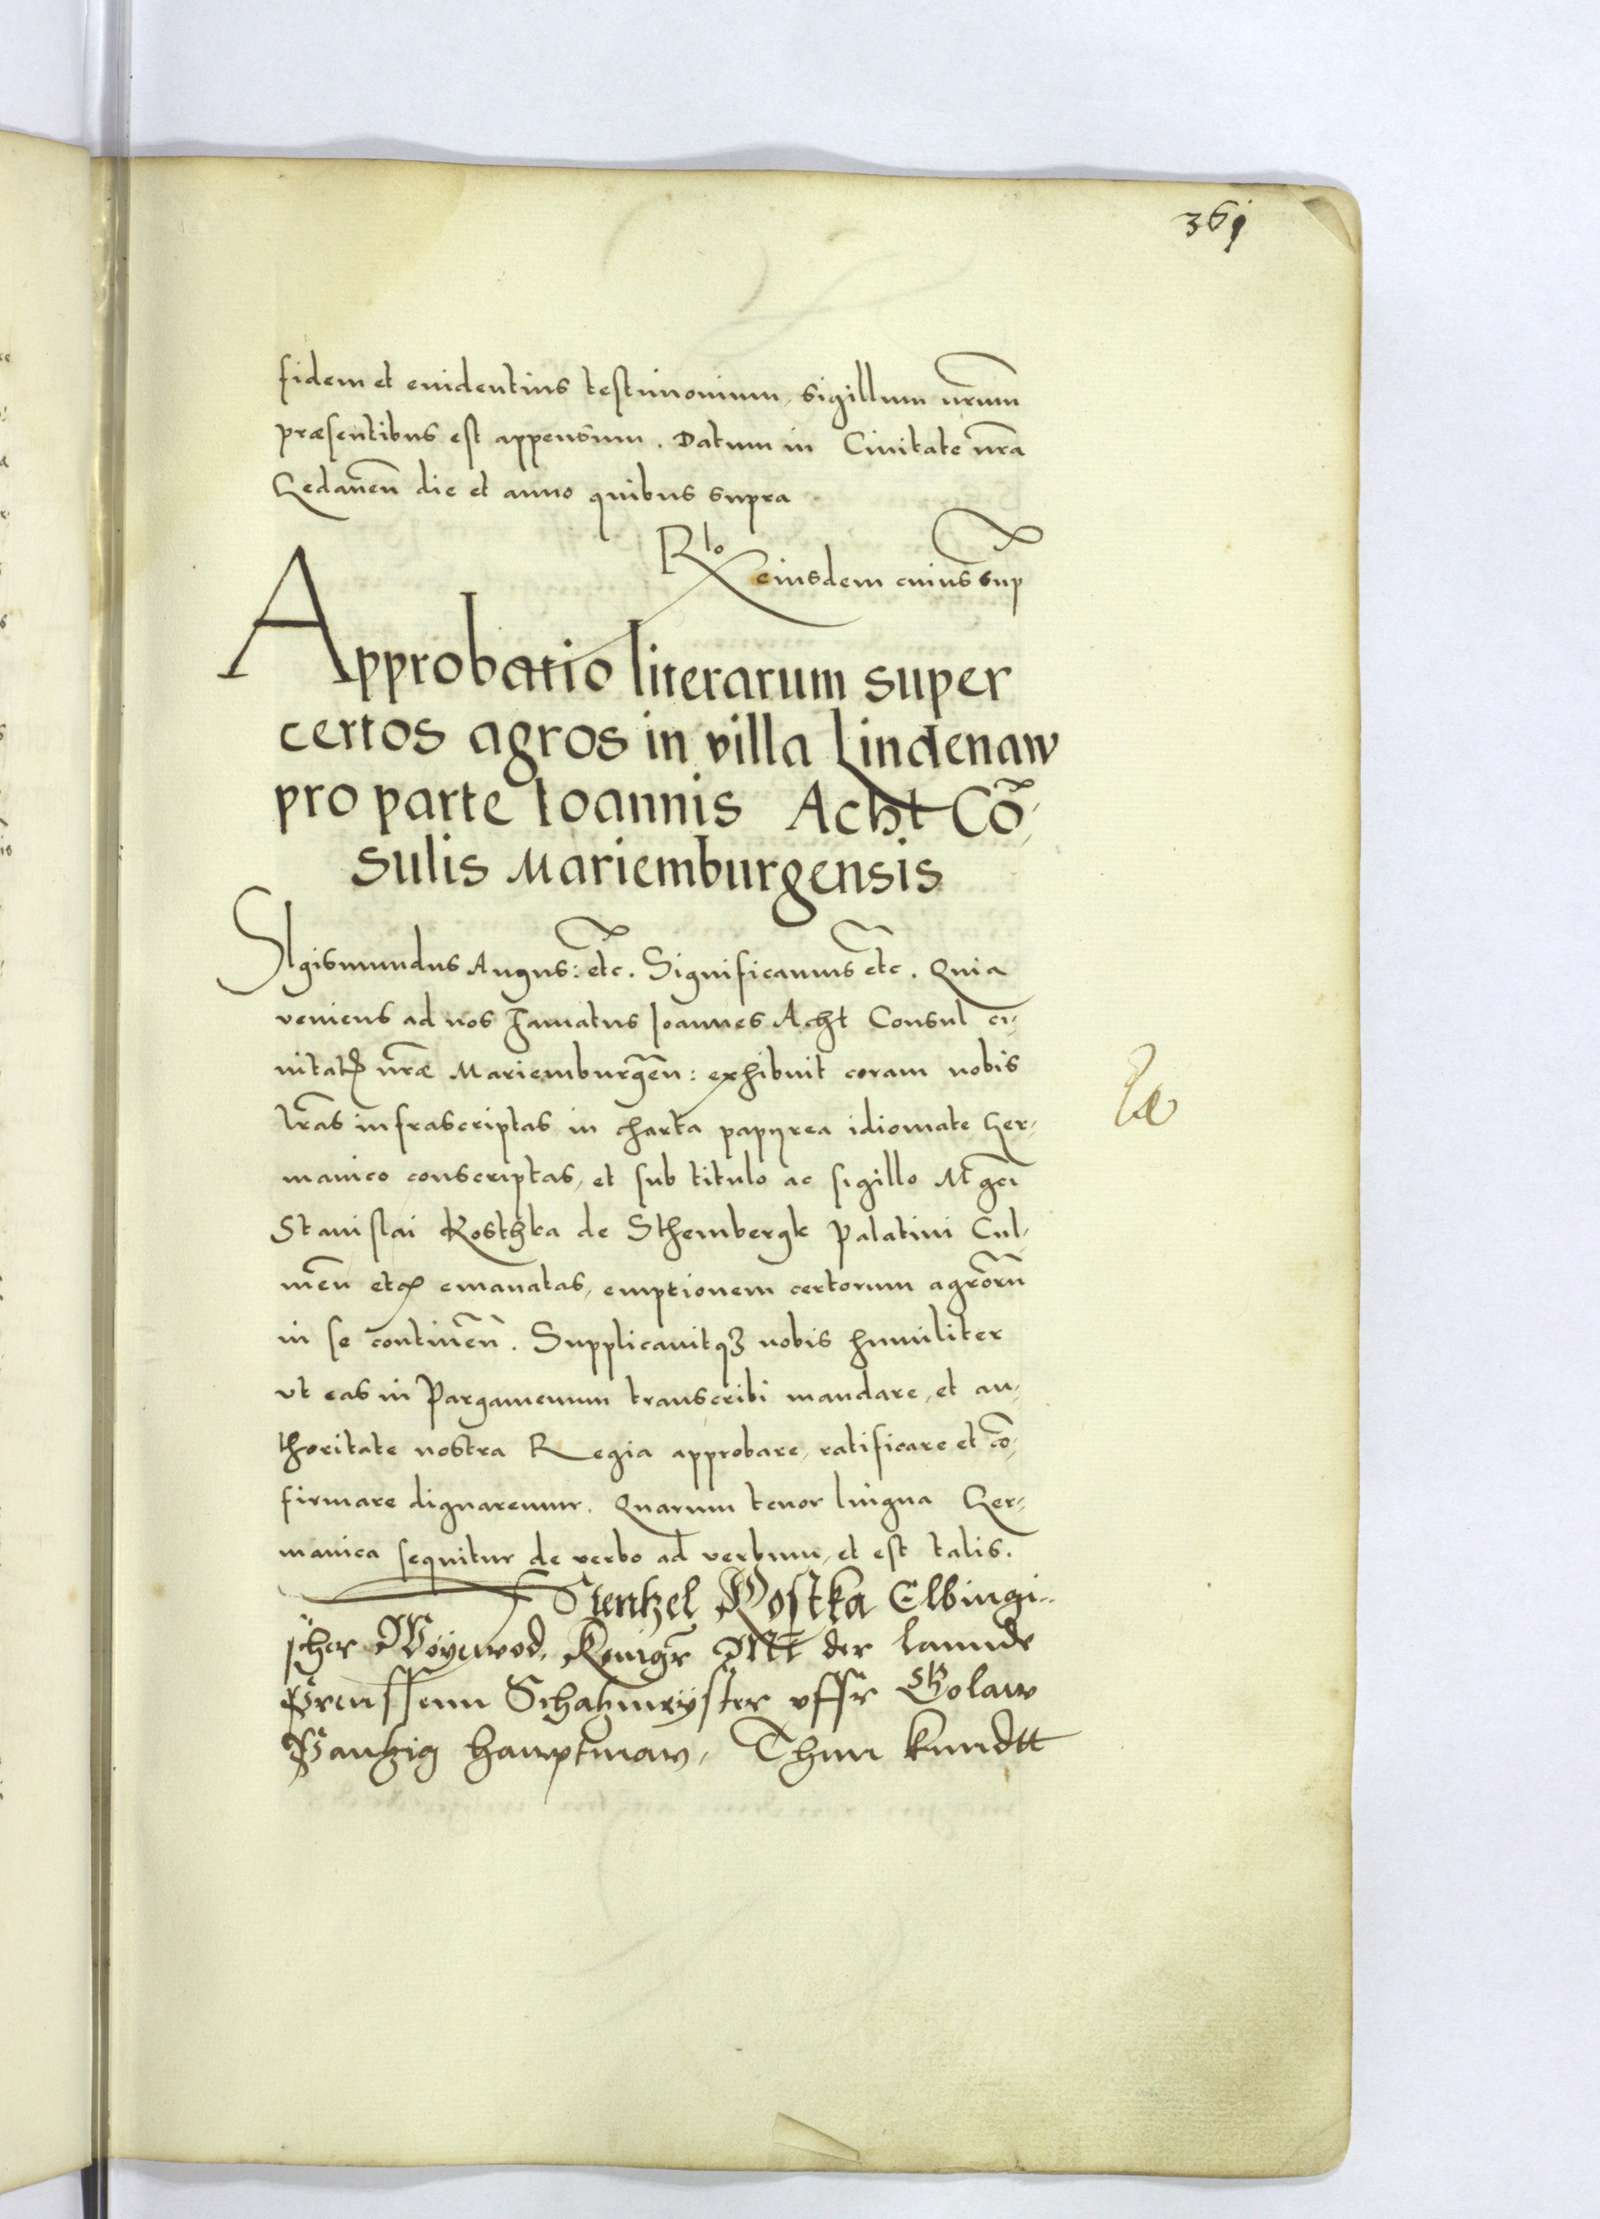 361
fidem et euidentius testimonium, sigillum nr̃um
præsentibus est appensum. Datum in Ciuitate nr̃a
Gedaneñ die et anno quibus supra
Rlo eiusdem cuius sup̃
Approbatio literarum super
certos agros in villa Lindenaw
pro parte Ioannis Acht Cõ-
sulis Mariemburgensis
SIgismundus Augus: etc̃. Significamus etc̃. Quia
veniens ad nos Famatus Ioannes Acht Consul ci-
uitatis nr̃æ Mariemburgeñ: exhibuit coram nobis
lr̃as infrascriptas in charta papyrea idiomate Ger-
manico conscriptas, et sub titulo ac sigillo Mgci
Stanislai Kosthka de Sthembergk Palatini Cul-
meñ etc emanatas, emptionem certorum agrorũ
in se contineñ. Supplicauitqꝫ nobis humiliter
vt eas in Pargamenum transcribi mandare, et au-
thoritate nostra Regia approbare, ratificare et cõ-
firmare dignaremur. Quarum tenor lingua Ger-
manica sequitur de verbo ad verbum, et est talis.
Stentzel Kostka Elbingi-
scher Woyewod, Konigr̃ Mt der lannde
Preussenn Schatzmeyster vffr Golaw
Pautzig hauptman, Thun kundtt